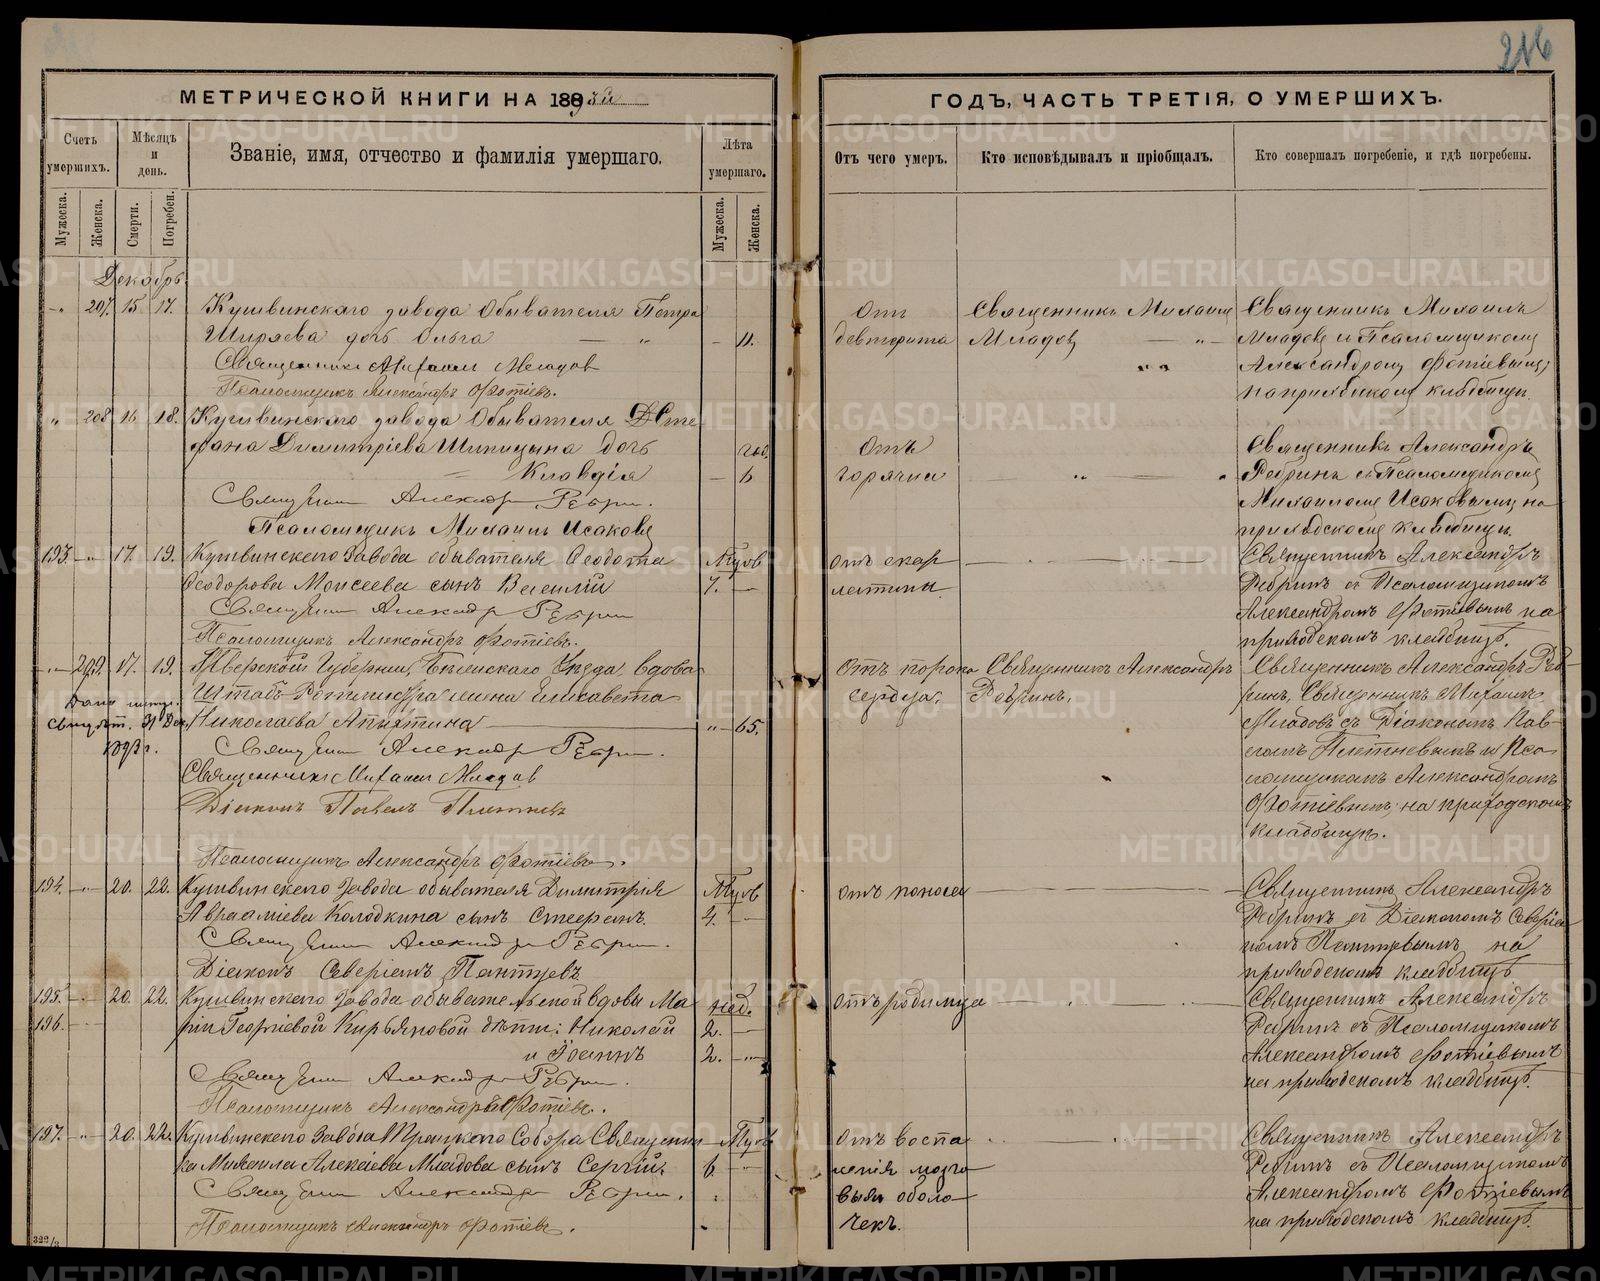 216
МЕТРИЧЕСКОЙ КНИГИ НА 1893й
ГОДЪ, ЧАСТЬ ТРЕТІЯ, О УМЕРШИХЪ.
Счетъ умершихъ.
Мѣсяцъ и день.
Званіе, имя, отчество и фамилія умершаго.
Лѣта умершаго.
Отъ чего умеръ.
Кто исповѣдывалъ и пріобщалъ.
Кто совершалъ погребеніе, и гдѣ погребены.
Мужеска.
Женска.
Смерти.
Погребен.
Мужеска.
Женска.
Декабрь.
207. 15 17. Кушвинскаго завода Обывателя Петра
Ширяева дочь Ольга 11.
Священникъ Михаилъ Младовъ
Псаломщикъ Александръ Фотіевъ.
Отъ
дифтерита
Священникъ Михаилъ
Младовъ
Священникъ Михаилъ
Младовъ и Псаломщикомъ
Александромъ Фотіевымъ;
на приходскомъ кладбищѣ.
208 16 18. Кушвинскаго завода Обывателя Сте
фана Димитріева Шипицына дочь год.
Клавдія 6
Священникъ Александръ Ребринъ.
Псаломщикъ Михаилъ Исаковъ
Отъ
горячки
Священникъ Александръ
Ребринъ съ Псаломщикомъ
Михаиломъ Исаковымъ на
приходскомъ кладбищѣ.
193. 17. 19. Кушвинскаго Завода обывателя Ѳеодота
Ѳеодорова Моисеева сынъ Василій 7.
Священникъ Александръ Ребринъ
Псаломщикъ Александръ Фотіевъ.
отъ скар
латины
Священникъ Александръ
Ребринъ съ Псаломщикомъ
Александромъ Фотіевымъ на
приходскомъ кладбищѣ.
209. 17. 19. Тверской Губерніи, Уѣзда, вдова
Штабъ-Ротмистра жена Елисавета
Николаева Апыхтина 65.
31 Дек. 1893 г.
Священникъ Александръ Ребринъ.
Священникъ Михаилъ Младовъ
Діаконъ Павелъ Плотневъ
Псаломщикъ Александръ Фотіевъ.
отъ порока
сердца.
Священникъ Александръ
Ребринъ.
Священникъ Александръ Реб-
ринъ, Священникъ Михаилъ
Младовъ съ Діакономъ Пав-
ломъ Плотневымъ и Пса
ломщикомъ Александромъ
Фотіевымъ; на приходскомъ
кладбищѣ.
194. 20. 22. Кушвинскаго Завода обывателя Димитрія
Авраамiева Колодкина сынъ Стефанъ. 4.
Священникъ Александръ Ребринъ.
Діаконъ Северіанъ Пантуевъ
отъ поноса
Священникъ Александръ
Ребринъ съ Діакономъ Северіа
номъ Пантуевымъ на
приходскомъ кладбищѣ
195. 20. 22. Кушвинскаго Завода обывательской вдовы Ма нед.
196. ріи Георгіевой Кирьяновой дѣти: Николай 2.
и Іоаннъ 2.
Священникъ Александръ Ребринъ.
Псаломщикъ Александръ Фотіевъ.
отъ родимца
Священникъ Александръ
Ребринъ съ Псаломщикомъ
Александромъ Фотіевымъ
на приходскомъ кладбищѣ.
197. 20. 22. Кушвинскаго Завода Троицкаго Собора Священни
ка Михаила Алексіева Младова сынъ Сергій. 6.
Священникъ Александръ Ребринъ.
Псаломщикъ Александръ Фотіевъ.
отъ воспа
ленія мозго
выхъ оболо
чекъ.
Священникъ Александръ
Ребринъ съ Псаломщикомъ
Александромъ Фотіевымъ
на приходскомъ кладбищѣ.
322/3
METRIKI.GASO-URAL.RU